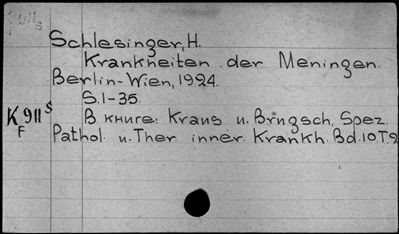 Schlesinger, H.
Krankheiten der Meningen.
Berlin-Wien, 1924.
S.1-35.
K 911 S
F
В книге: Kraus u. Brugsch, Spez.
Pathol. u. Ther. inner. Krankh. Bd.10 T.2